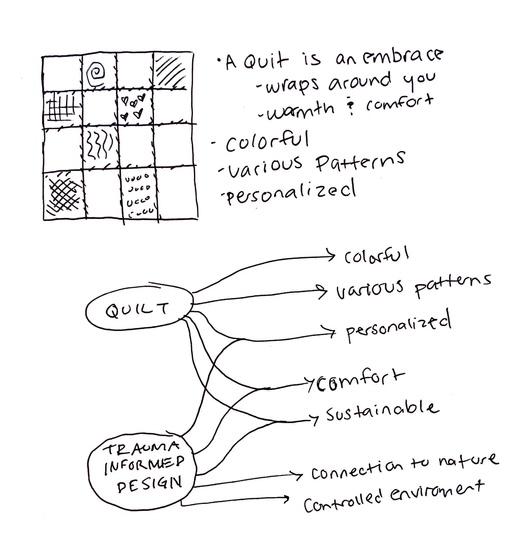 • A Quit is an embrace
- wraps around you
- warmth & comfort
- colorful
- various Patterns
- personalized
QUILT
colorful
various patterns
personalized
comfort
Sustainable
TRAUMA
INFORMED
DESIGN
Connection to nature
Controlled enviroment